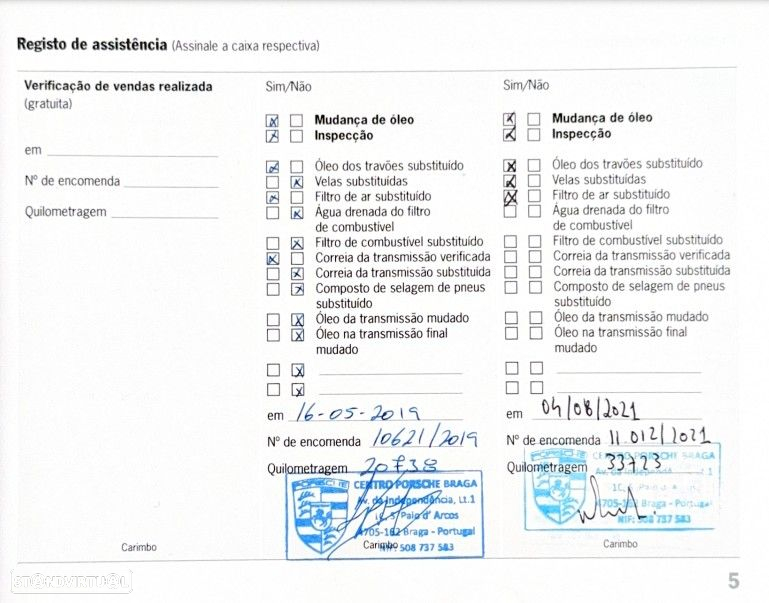 Registo de assistência (Assinale a caixa respectiva)
Verificação de vendas realizada
(gratuita)
em
Nº de encomenda
Quilometragem
Carimbo
Sim/Não
Mudança de óleo
Inspecção
Óleo dos travões substituído
Velas substituídas
Filtro de ar substituído
Água drenada do filtro
de combustível
Filtro de combustível substituído
Correia da transmissão verificada
Correia da transmissão substituída
Composto de selagem de pneus
substituído
Óleo da transmissão mudado
Óleo na transmissão final
mudado
em 16-05-2019
Nº de encomenda 10621/2019
Quilometragem 20738
PORSCHE
CENTRO PORSCHE BRAGA
Av. da Independência, Lt.1
S. Paio d' Arcos
4705-162 Braga - Portugal
Carimbo NIF: 508 737 583
Sim/Não
Mudança de óleo
Inspecção
Óleo dos travões substituído
Velas substituídas
Filtro de ar substituído
Água drenada do filtro
de combustível
Filtro de combustível substituído
Correia da transmissão verificada
Correia da transmissão substituída
Composto de selagem de pneus
substituído
Óleo da transmissão mudado
Óleo na transmissão final
mudado
em 04/08/2021
Nº de encomenda 11.012/2021
Quilometragem 33723
CENTRO PORSCHE BRAGA
4705-162 Braga - Portugal
NIF: 508 737 583
Carimbo
STANDVIRTUAL
5